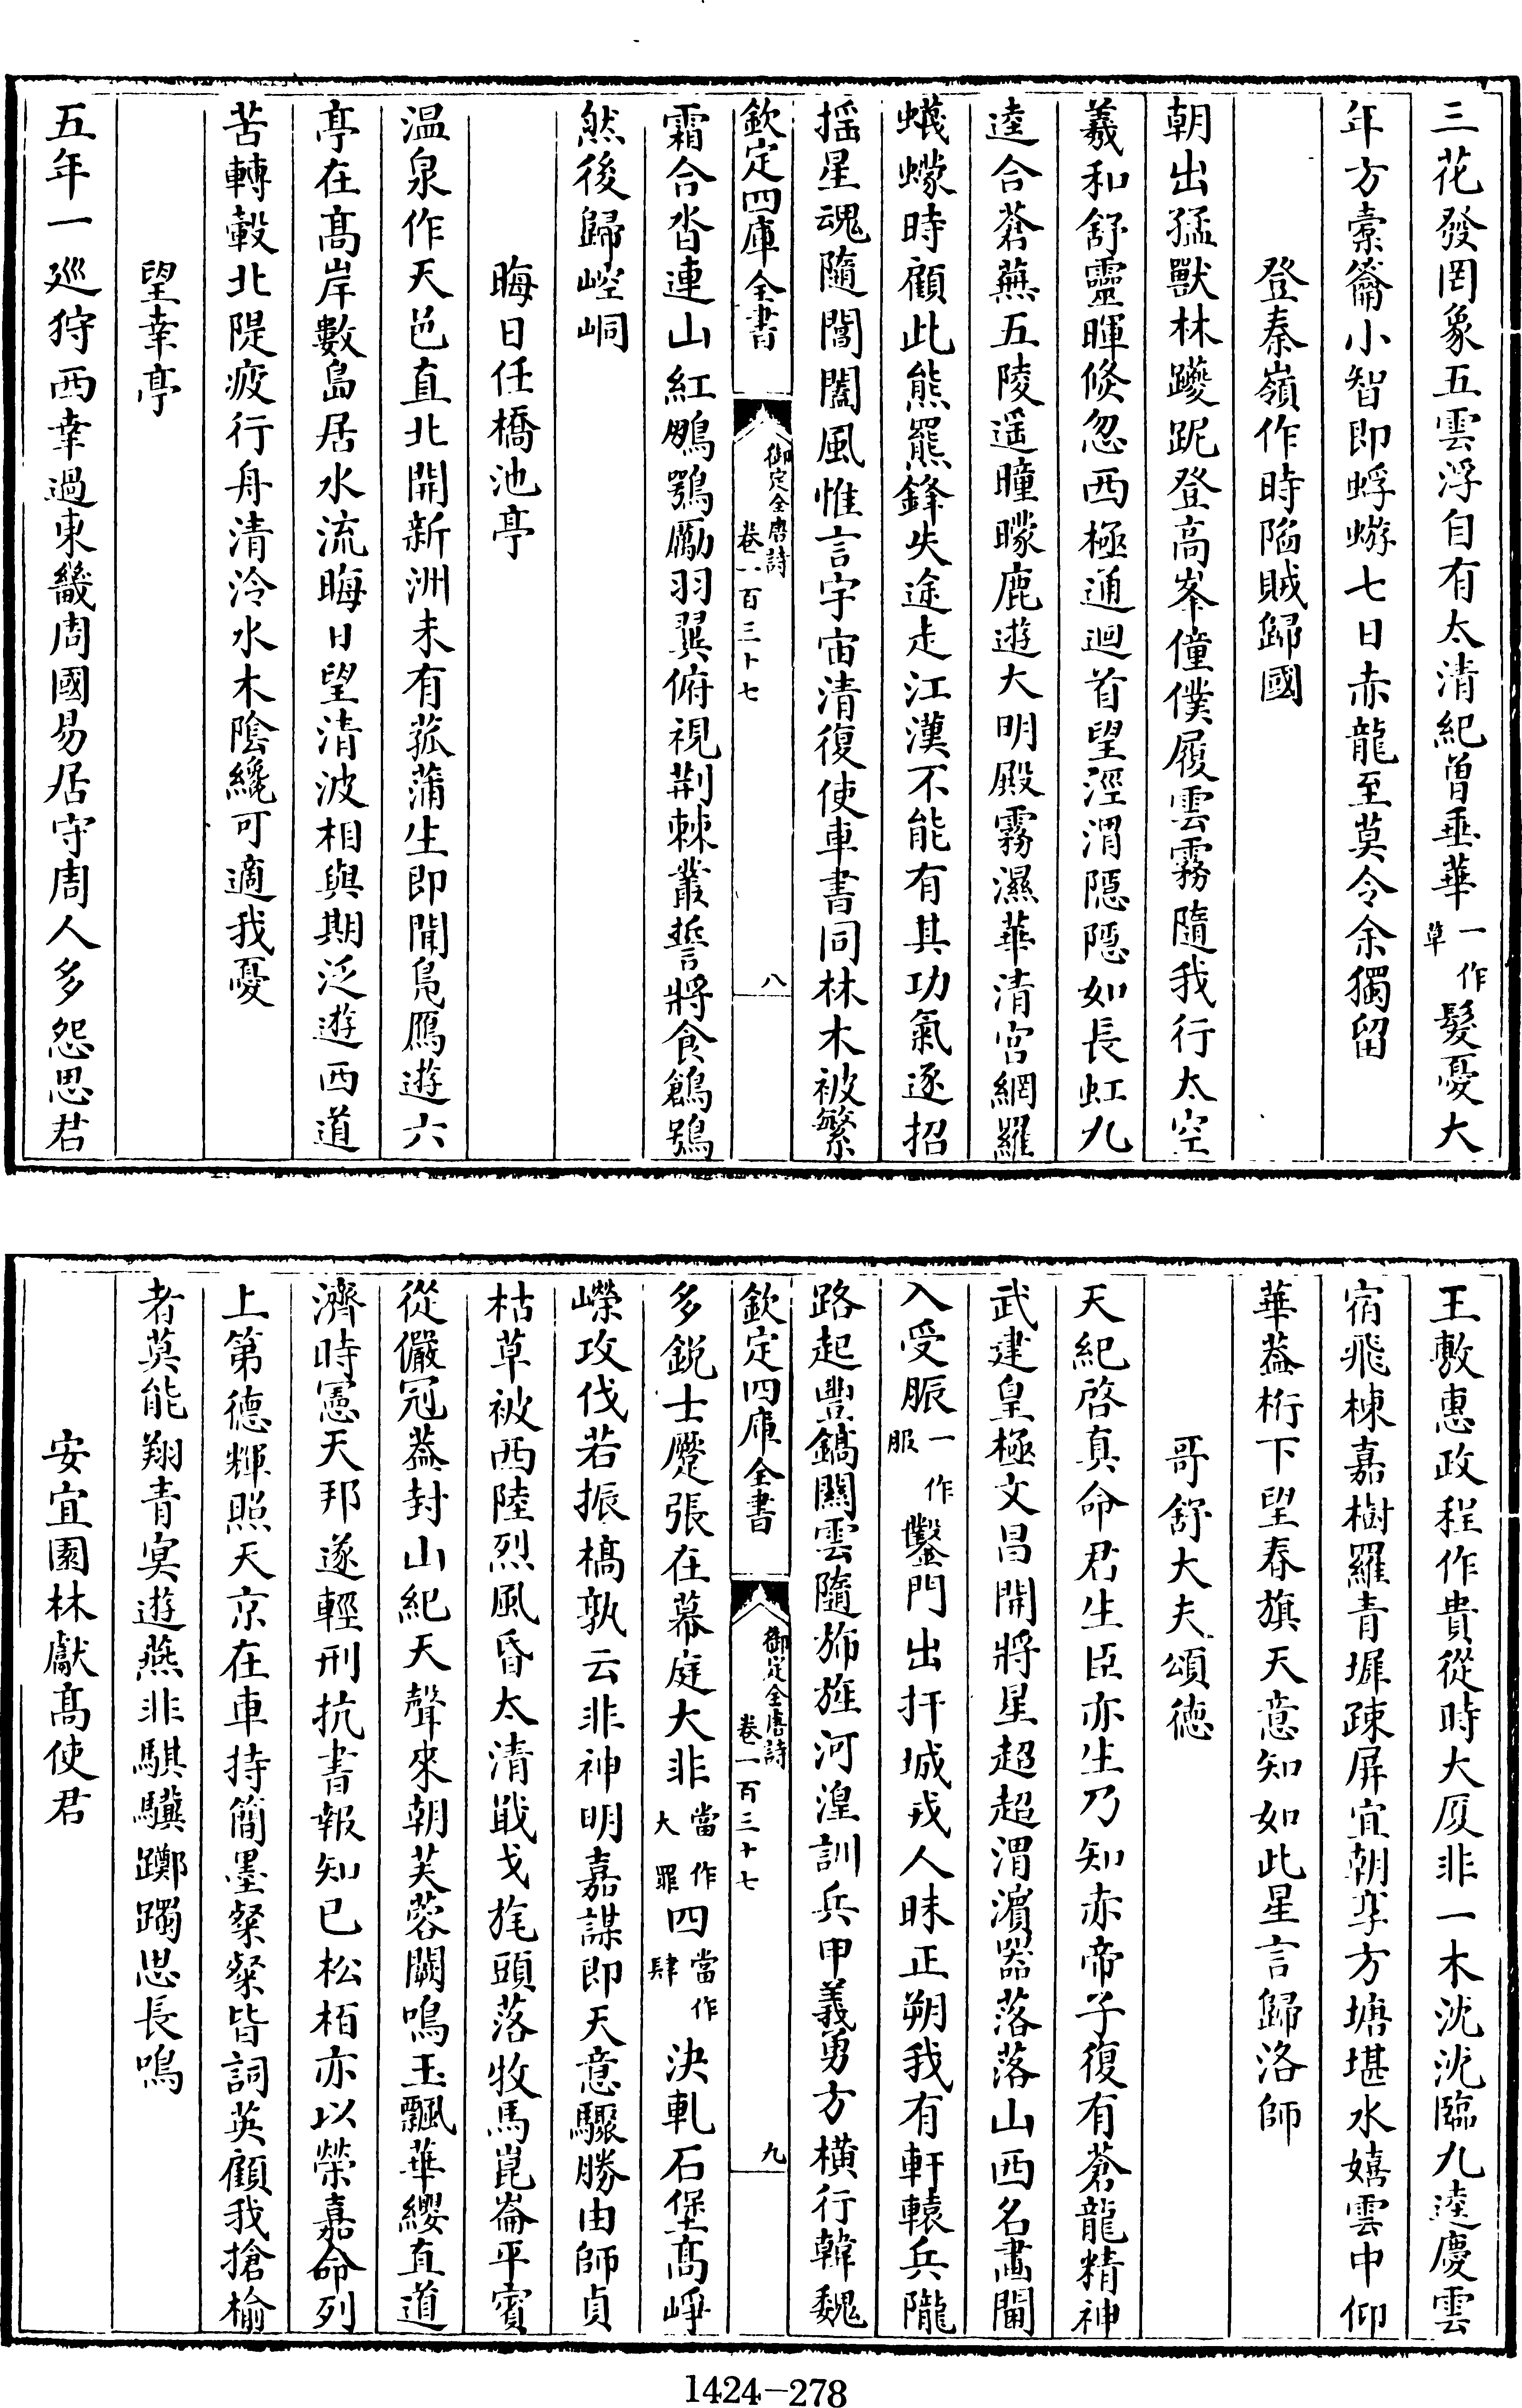 三花發罔象五雲浮自有太清紀曾垂華一作草髮憂大
年方槖籥小智即蜉蝣七日赤龍至莫令余獨留
登秦嶺作時陷賊歸國
朝出猛獸林躨跜登高峯僮僕履雲霧隨我行太空
羲和舒靈暉倐忽西極通迴首望涇渭隱隱如長虹九
逵合蒼蕪五陵遥瞳矇鹿遊大明殿霧濕華清宫網羅
蠛蠓時顧此熊羆鋒失途走江漢不能有其功氣逐招
摇星魂隨閶闔風惟言宇宙清復使車書同林木被繁
欽定四庫全書
御定全唐詩
卷一百三十七
八
霜合沓連山紅鵰鶚厲羽翼俯視荆棘叢誓將食鶬鴞
然後歸崆峒
晦日任橋池亭
温泉作天邑直北開新洲未有菰蒲生即聞鳬鴈遊六
亭在髙岸數島居水流晦日望清波相與期泛遊西道
苦轉轂北隄疲行舟清泠水木陰纔可適我憂
望幸亭
五年一巡狩西幸過東畿周國易居守周人多怨思君
王敷惠政程作貴從時大厦非一木沈沈臨九逵慶雲
宿飛棟嘉樹羅青墀疎屏宜朝享方塘堪水嬉雲中仰
華葢桁下望春旗天意知如此星言歸洛師
哥舒大夫頌徳
天紀啓真命君生臣亦生乃知赤帝子復有蒼龍精神
武建皇極文昌開將星超超渭濵器落落山西名畫閫
入受脤一作服鑿門出扞城戎人昧正朔我有軒轅兵隴
路起豐鎬關雲隨斾旌河湟訓兵甲義勇方横行韓魏
欽定四庫全書
御定全唐詩
卷一百三十七
九
多鋭士蹷張在幕庭大非當作大罪四當作肆決軋石堡髙崢
嶸攻伐若振槁孰云非神明嘉謀即天意驟勝由師貞
枯草被西陸烈風昏太清戢戈旄頭落牧馬崑崙平賓
從儼冠葢封山紀天聲來朝芙蓉闕鳴玉飄華纓直道
濟時憲天邦遂輕刑抗書報知已松栢亦以榮嘉命列
上第徳輝照天京在車持簡墨粲粲皆詞英顧我搶榆
者莫能翔青㝠遊燕非騏驥躑躅思長鳴
安宜園林獻髙使君
1424-278